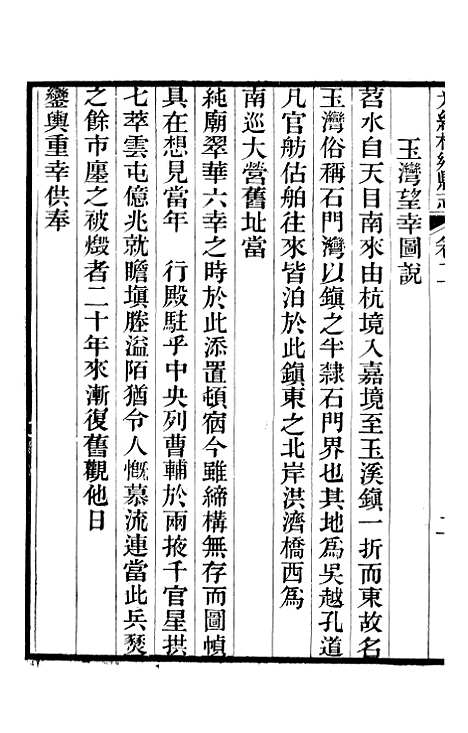 光緒桐鄉縣志 卷二 二
玉灣望幸圖說
苕水自天目南來由杭境入嘉境至玉溪鎮一折而東故名
玉灣俗稱石門灣以鎮之半隸石門界也其地為吳越孔道
凡官舫估舶往來皆泊於此鎮東之北岸洪濟橋西為
南巡大營舊址當
純廟翠華六幸之時於此添置頓宿今雖締構無存而圖幀
具在想見當年 行殿駐乎中央列曹輔於兩掖千官星拱
七萃雲屯億兆就瞻塡塍溢陌猶令人慨慕流連當此兵燹
之餘市廛之被燬者二十年來漸復舊觀他日
鑾輿重幸供奉